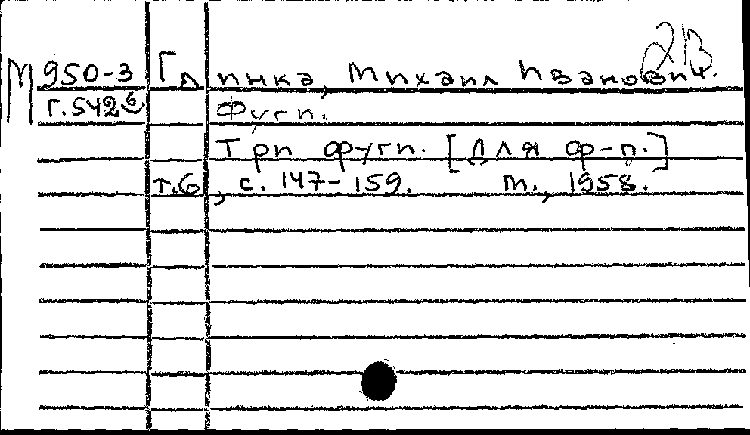 2В
М 950-3 Глинка, Михаил Иванович.
Г.542б Фуги.
Три фуги. [Для ф-п.]
т.6, с. 147-159. М., 1958.